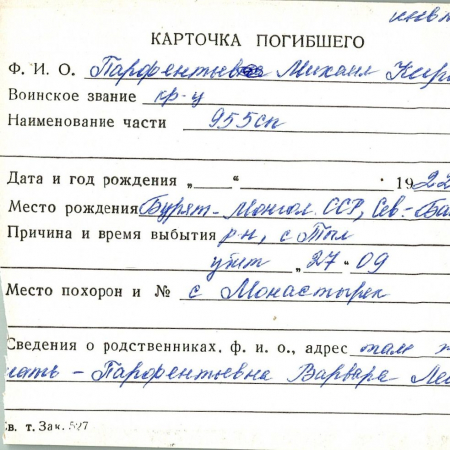 инв
КАРТОЧКА ПОГИБШЕГО
Ф. И. О. Парфентьев Михаил Кир
Воинское звание кр-ц
Наименование части 955сп
Дата и год рождения „ “ 1922
Место рождения Бурят-Монгол. ССР, Сев.-Ба
Причина и время выбытия р-н, с Тыл
убит „27“ 09
Место похорон и № с Монастырек
Сведения о родственниках, ф. и о., адрес там ж
мать - Парфентьевна Варвара Ле
Кв. т. Зак. 527